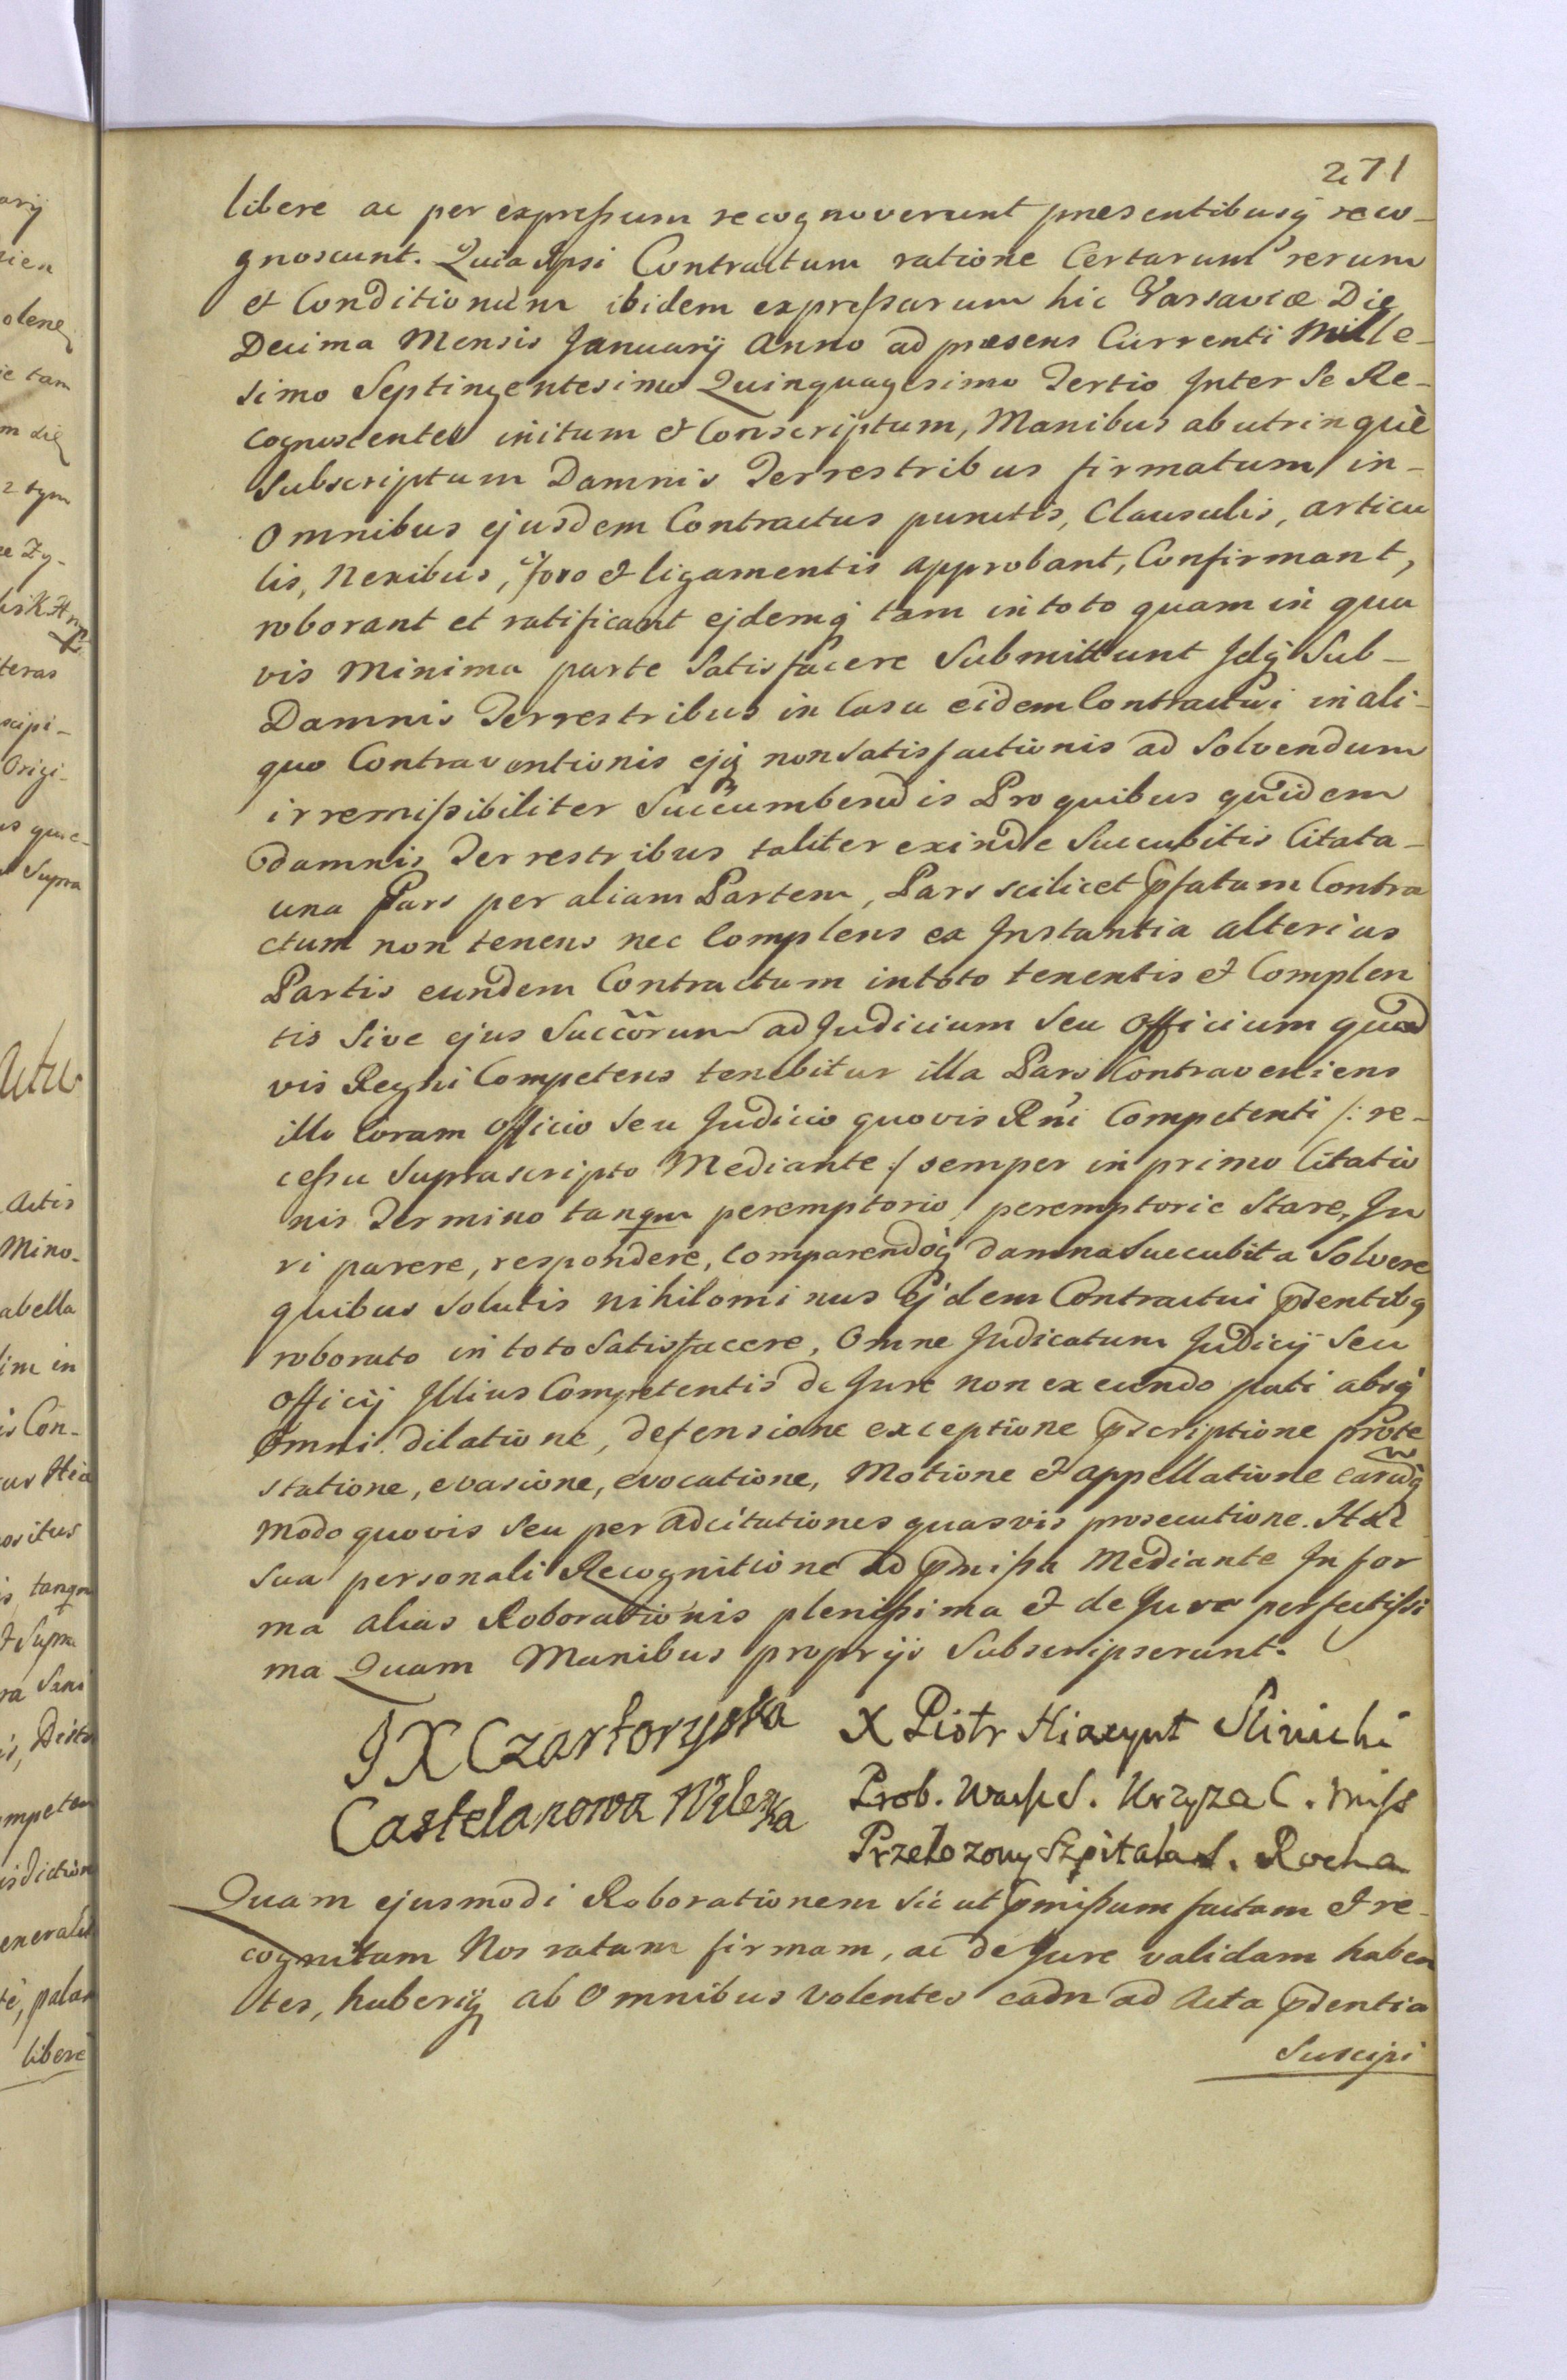 271
libere ac per expressum recognoverunt præsentibusq reco-
gnoscunt. Quia Ipsi Contractum ratione Certarum rerum
et Conditionum ibidem expressarum hic Varsaviæ Die
Decima Mensis Januarij Anno ad præsens Currenti Mille-
simo Septingentesimo Quinquagesimo Tertio Inter Se Re-
cognoscentes initum et Conscriptum, Manibus ab utrinquè
Subscriptum Damnis Terrestribus firmatum in-
Omnibus ejusdem Contractus punctis, Clausulis, articu
lis, Nexibus, foro et ligamentis approbant, Confirmant,
roborant et ratificant ejdemq tam in toto quam in qua
vis minima parte Satisfacere Submittunt Idq Sub-
Damnis Terrestribus in Casu eidem Contractui in ali-
quo Contraventionis ejq non satisfactionis ad Solvendum
irremissibiliter Succumbendis Pro quibus quidem
damnis Terrestribus taliter exinde Succubitis Citata-
una Pars per aliam Partem, Pars scilicet pfatum Contra
ctum non tenens nec Complens ex Instantia alterius
Partis eundem Contractum in toto tenentis et Complen
tis Sive ejus Succorum ad Judicium Seu Officium quod
vis Regni Competens tenebitur illa Pars Contraveniens
illo Coram Officio Seu Judicio quovis Rni Competenti /: re-
cessu Suprascripto Mediante :/ semper in primo Citatio
nis Termino tanqm peremptorio, peremptorie Stare, Ju
ri parere, respondere, Comparendoq damna Succubita Solvere
quibus Solutis nihilominus Ejdem Contractui pdentibq
roborato in toto Satisfacere, Omne Judicatum Judicij Seu
Officij Illius Competentis de Jure non exeundo pati absq
Omni dilatione, defensione exceptione pscriptione prote
statione, evasione, evocatione, Motione et appellatione earudq
modo quovis Seu per adcitationes quasvis prosecutione. Hac
Sua personali Recognitione ad pmissa Mediante In for
ma alias Roborationis plenissima et de Jure perfectissi
ma Quam Manibus proprijs Subscripserunt.
I X Czartoryska
Castelanowa Wilenska
X Piotr Hiacynt Sliwicki
Prob. Warss. Krzyza C. Miss
Przelozony Szpitala S. Rocha
Quam ejusmodi Roborationem Sic ut pmissum factam et re-
cognitam Nos ratam firmam, ac de Jure validam haben
tes, haberiq ab Omnibus Volentes eadn ad Acta pdentia
Suscipi